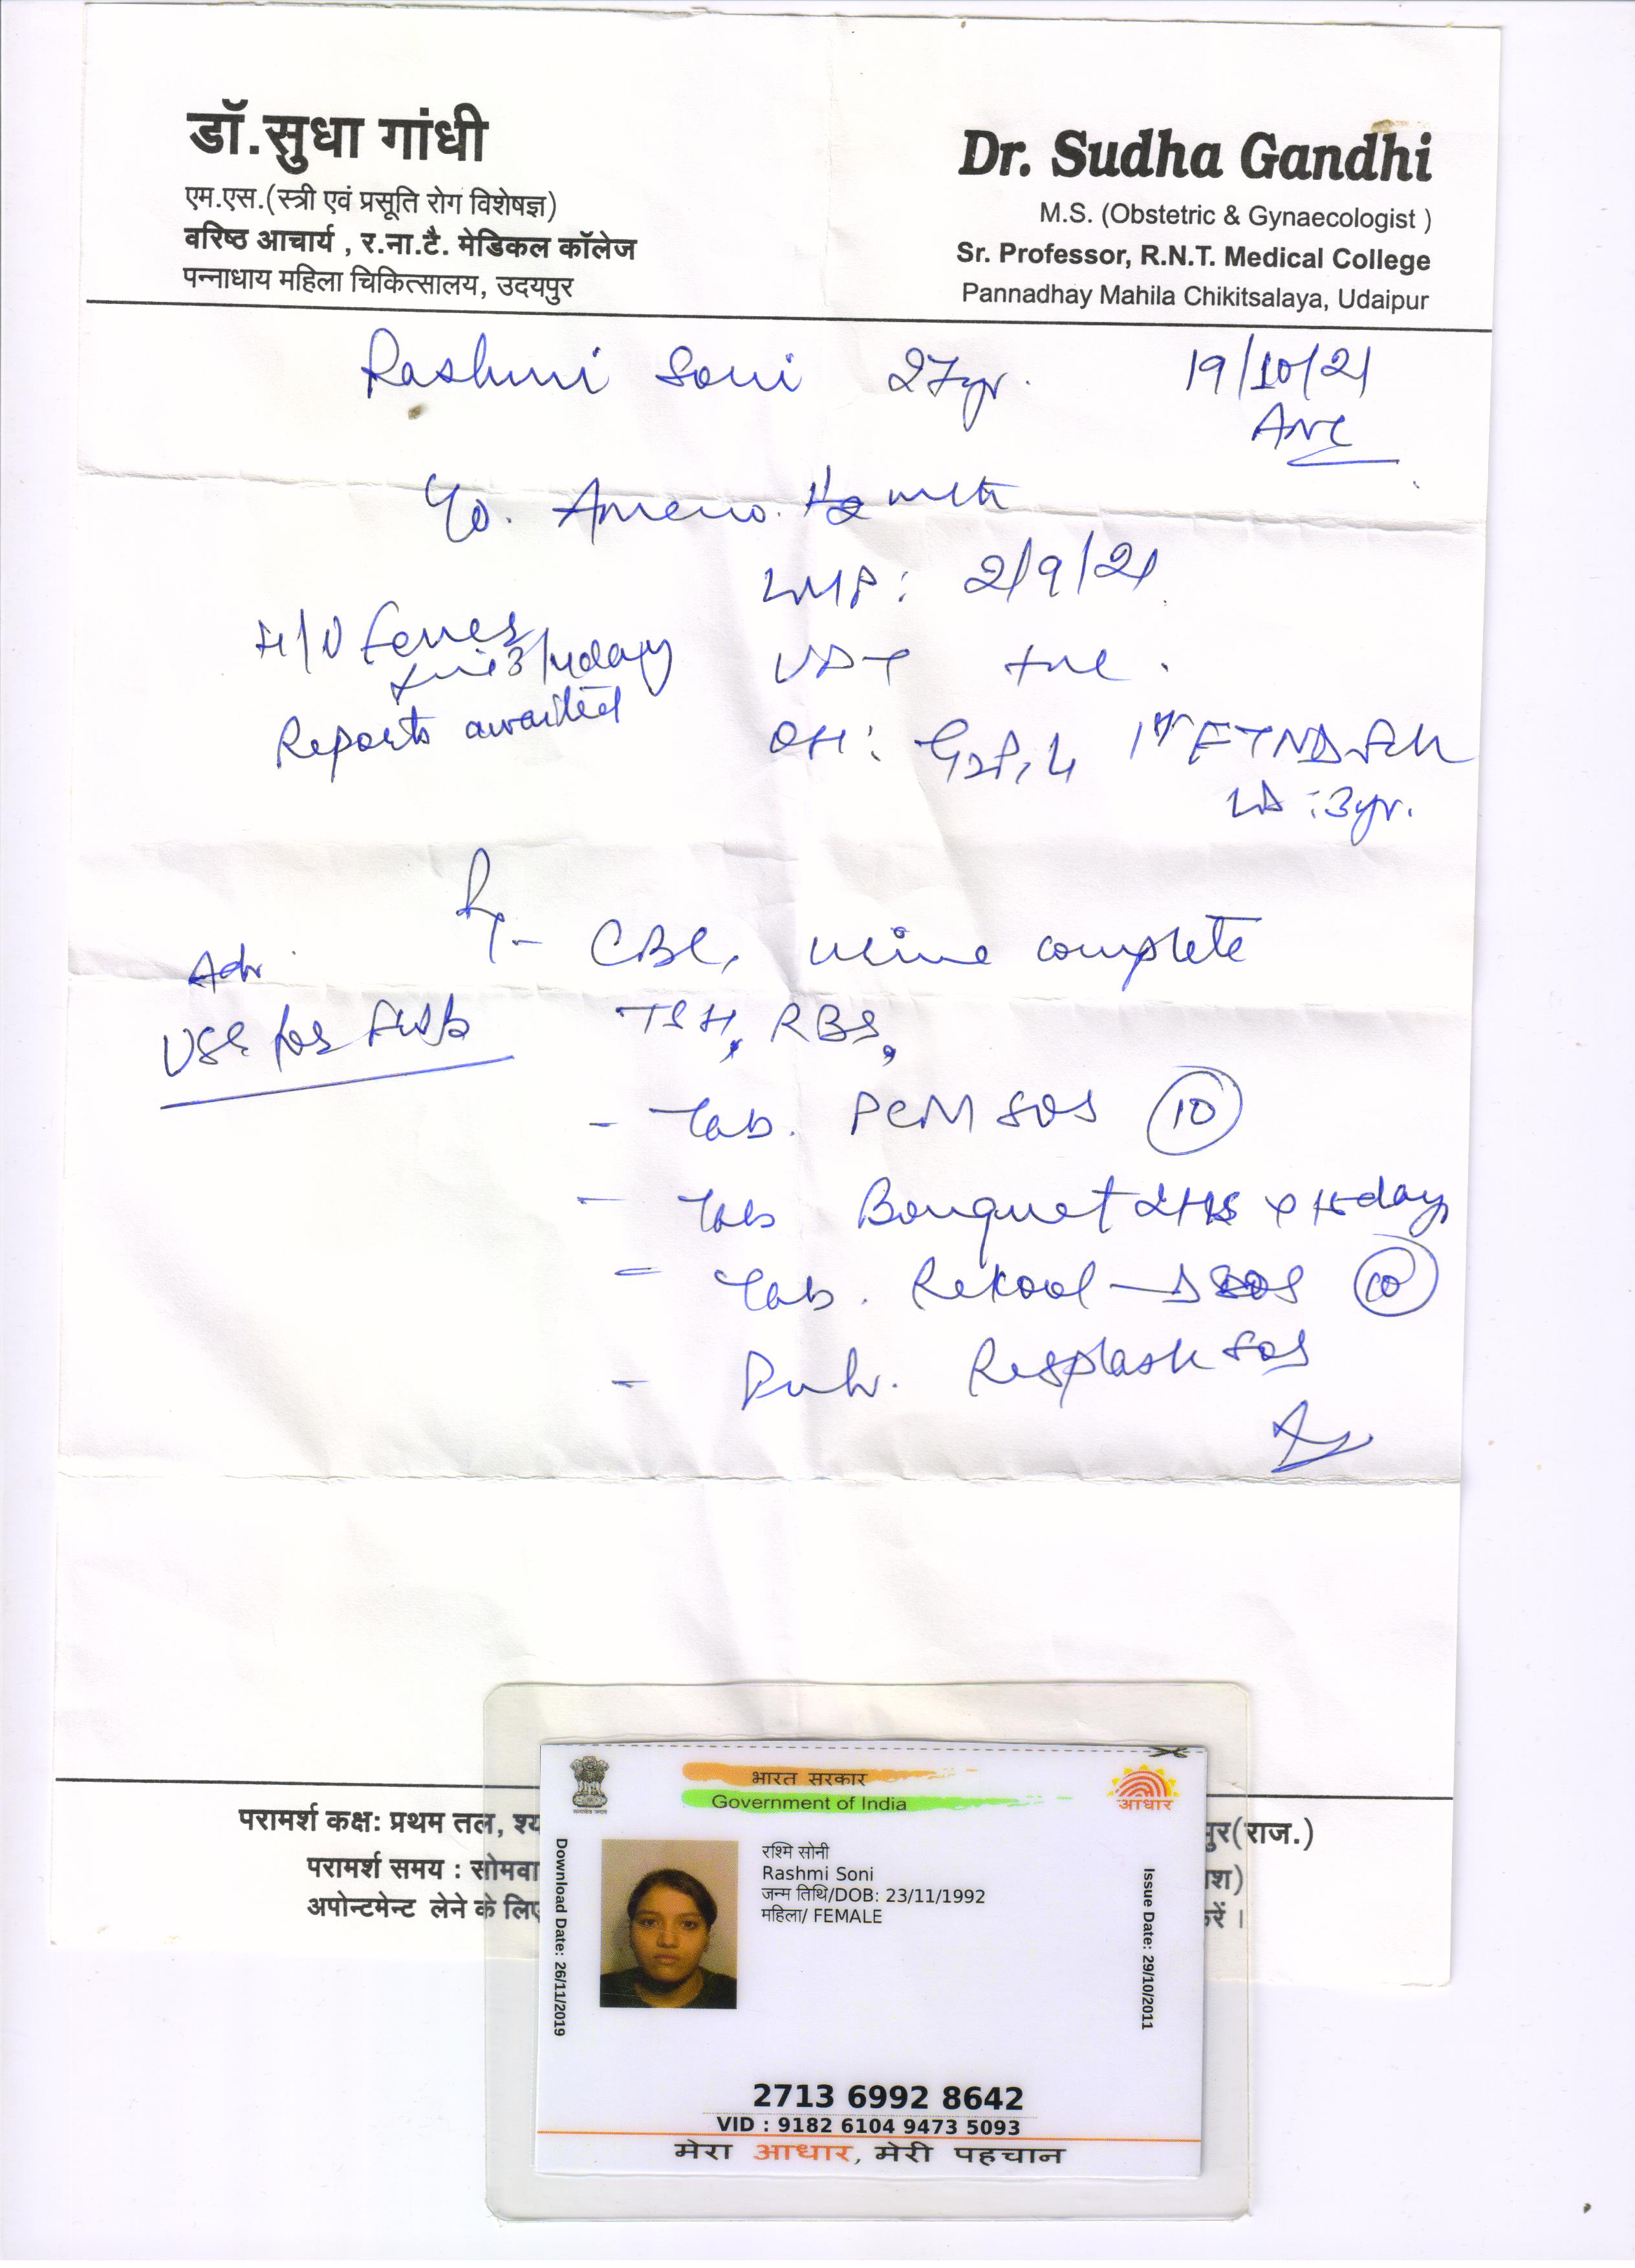 डॉ.सुधा गांधी
एम.एस.(स्त्री एवं प्रसूति रोग विशेषज्ञ)
वरिष्ठ आचार्य , र.ना.टै. मेडिकल कॉलेज
पन्नाधाय महिला चिकित्सालय, उदयपुर
Dr. Sudha Gandhi
M.S. (Obstetric & Gynaecologist )
Sr. Professor, R.N.T. Medical College
Pannadhay Mahila Chikitsalaya, Udaipur
Rashmi Soni 27yr. 19/10/21
ANC
C/o. Ameno. 1½ mth
LMP: 2/9/21
H/O Fever
3/4days
UPT +ve.
Reports awaited
OH: G2P1L1 1st FTND
LD : 3yr.
Adv
CBC, urine complete
USG for
TSH, RBS,
- Tab. PCM SOS 10
- Tab Bouquet 2HS x 15days
- Tab. Rekool-D SOS 10
- Resplash SOS
परामर्श कक्ष: प्रथम तल, श्य
पुर(राज.)
परामर्श समय : सोमवा
अपोन्टमेन्ट लेने के लिए
करें ।
भारत सरकार
Government of India
आधार
Download Date: 26/11/2019
रश्मि सोनी
Rashmi Soni
जन्म तिथि/DOB: 23/11/1992
महिला/ FEMALE
Issue Date: 29/10/2011
2713 6992 8642
VID : 9182 6104 9473 5093
मेरा आधार, मेरी पहचान